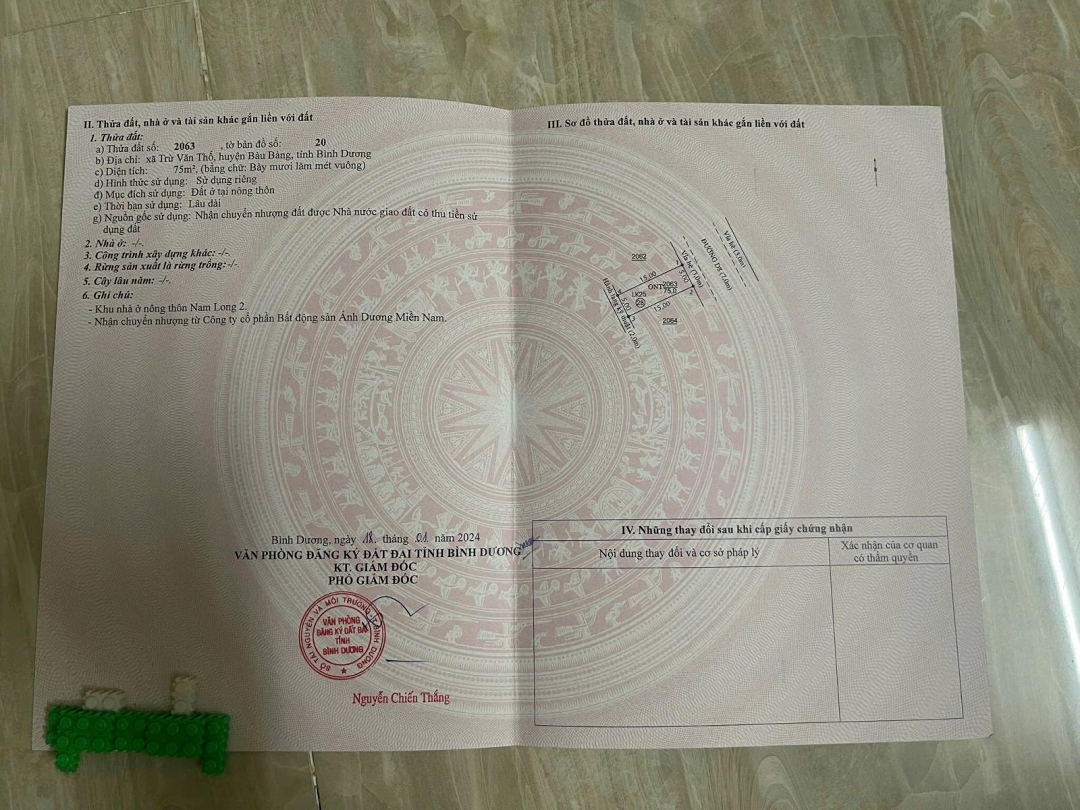 II. Thửa đất, nhà ở và tài sản khác gắn liền với đất
1. Thửa đất:
a) Thửa đất số: 2063 , tờ bản đồ số: 20
b) Địa chỉ: xã Trừ Văn Thố, huyện Bàu Bàng, tỉnh Bình Dương
c) Diện tích: 75m², (bằng chữ: Bảy mươi lăm mét vuông)
d) Hình thức sử dụng: Sử dụng riêng
đ) Mục đích sử dụng: Đất ở tại nông thôn
e) Thời hạn sử dụng: Lâu dài
g) Nguồn gốc sử dụng: Nhận chuyển nhượng đất được Nhà nước giao đất có thu tiền sử
dụng đất
2. Nhà ở: -/-.
3. Công trình xây dựng khác: -/-.
4. Rừng sản xuất là rừng trồng: -/-.
5. Cây lâu năm: -/-.
6. Ghi chú:
- Khu nhà ở nông thôn Nam Long 2.
- Nhận chuyển nhượng từ Công ty cổ phần Bất động sản Ánh Dương Miền Nam.
Bình Dương, ngày 18 tháng 01 năm 2024
VĂN PHÒNG ĐĂNG KÝ ĐẤT ĐAI TỈNH BÌNH DƯƠNG
KT. GIÁM ĐỐC
PHÓ GIÁM ĐỐC
SỞ TÀI NGUYÊN VÀ MÔI TRƯỜNG T. BÌNH DƯƠNG
VĂN PHÒNG
ĐĂNG KÝ ĐẤT ĐAI
TỈNH
BÌNH DƯƠNG
Nguyễn Chiến Thắng
III. Sơ đồ thửa đất, nhà ở và tài sản khác gắn liền với đất
Vỉa hè (3,0m)
ĐƯỜNG D8 (7,0m)
Vỉa hè (3,0m)
2062
15,00
5,00
ONT
2063
75,0
LK25
28
5,00
15,00
2064
Hành lang kỹ thuật (2,0m)
IV. Những thay đổi sau khi cấp giấy chứng nhận
Nội dung thay đổi và cơ sở pháp lý
Xác nhận của cơ quan
có thẩm quyền